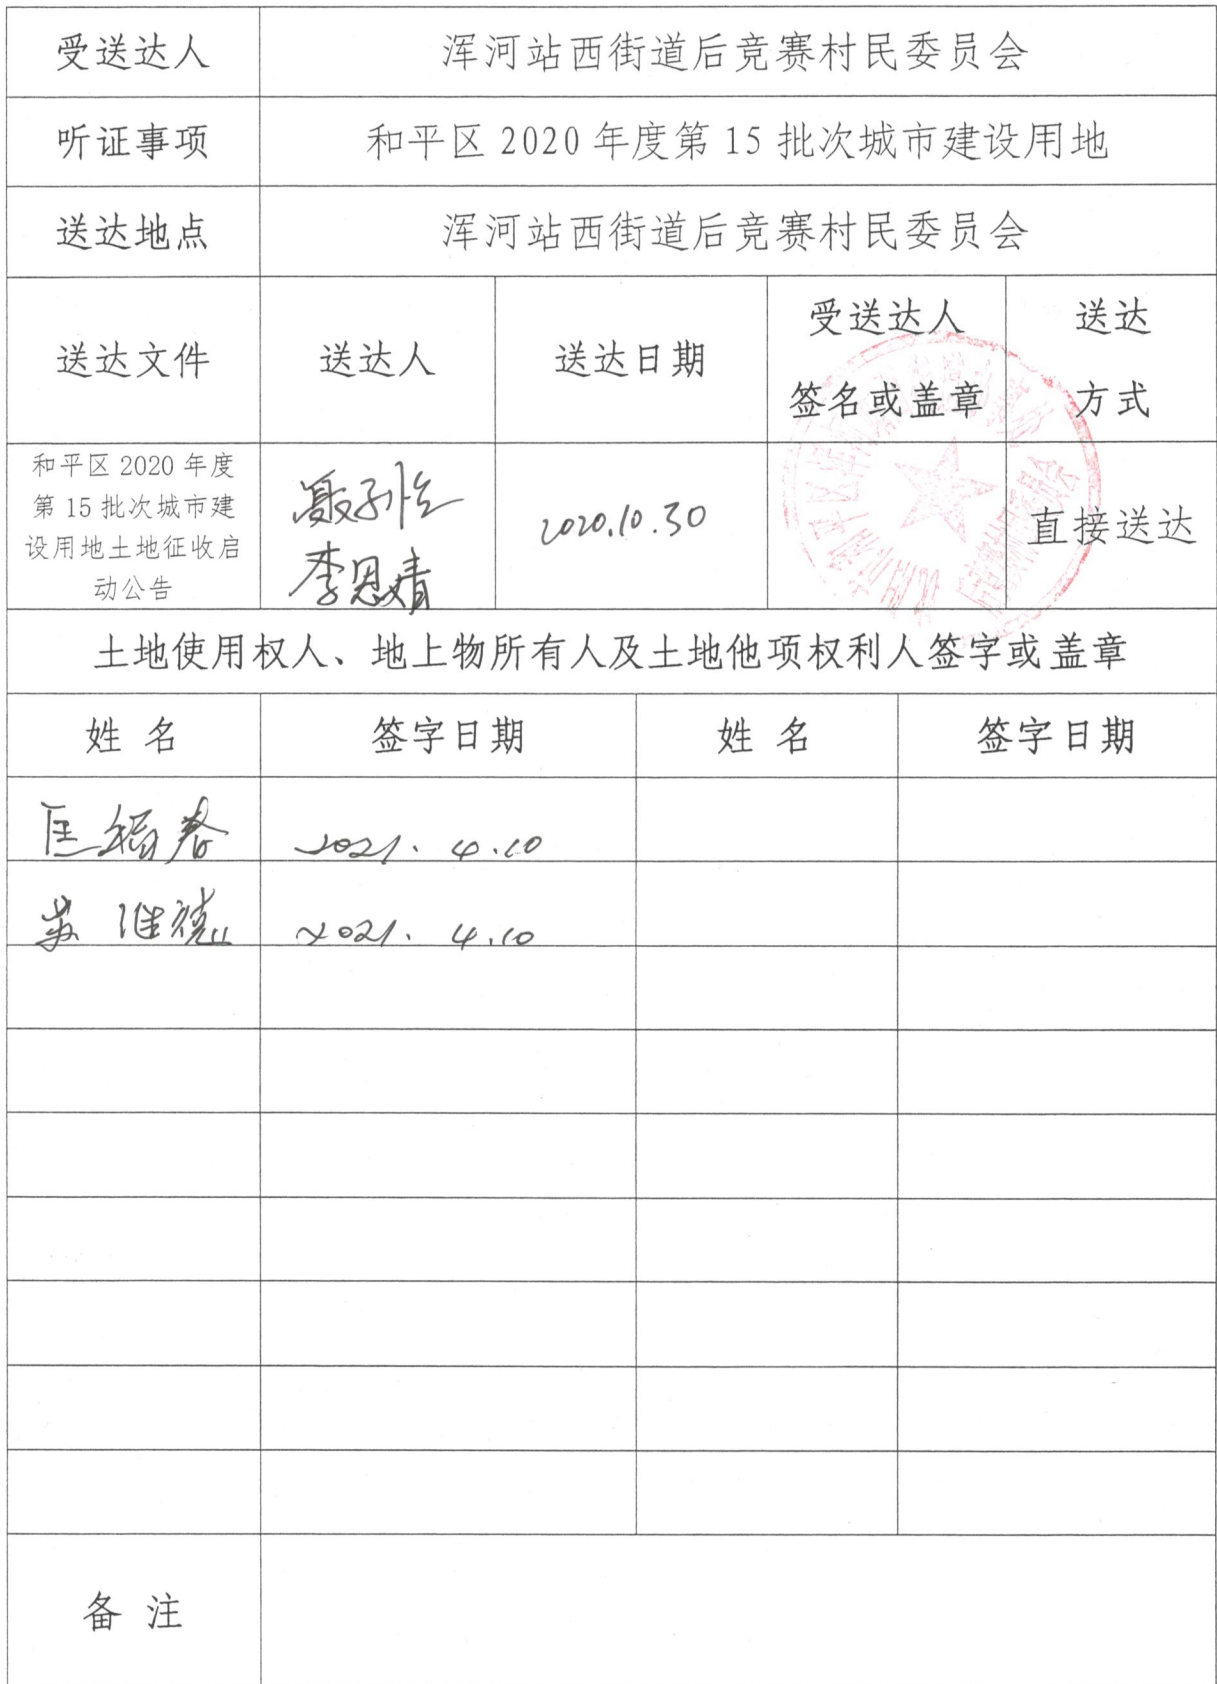 受送达人 浑河站西街道后竞赛村民委员会
听证事项 和平区 2020 年度第 15 批次城市建设用地
送达地点 浑河站西街道后竞赛村民委员会
送达文件 送达人 送达日期 受送达人 签名或盖章 送达 方式
和平区 2020 年度
第 15 批次城市建
设用地土地征收启
动公告
李恩婧
2020.10.30
直接送达
土地使用权人、地上物所有人及土地他项权利人签字或盖章
姓 名 签字日期 姓 名 签字日期
匡稻春 2021. 4.10
苏 维德 2021. 4.10
备 注